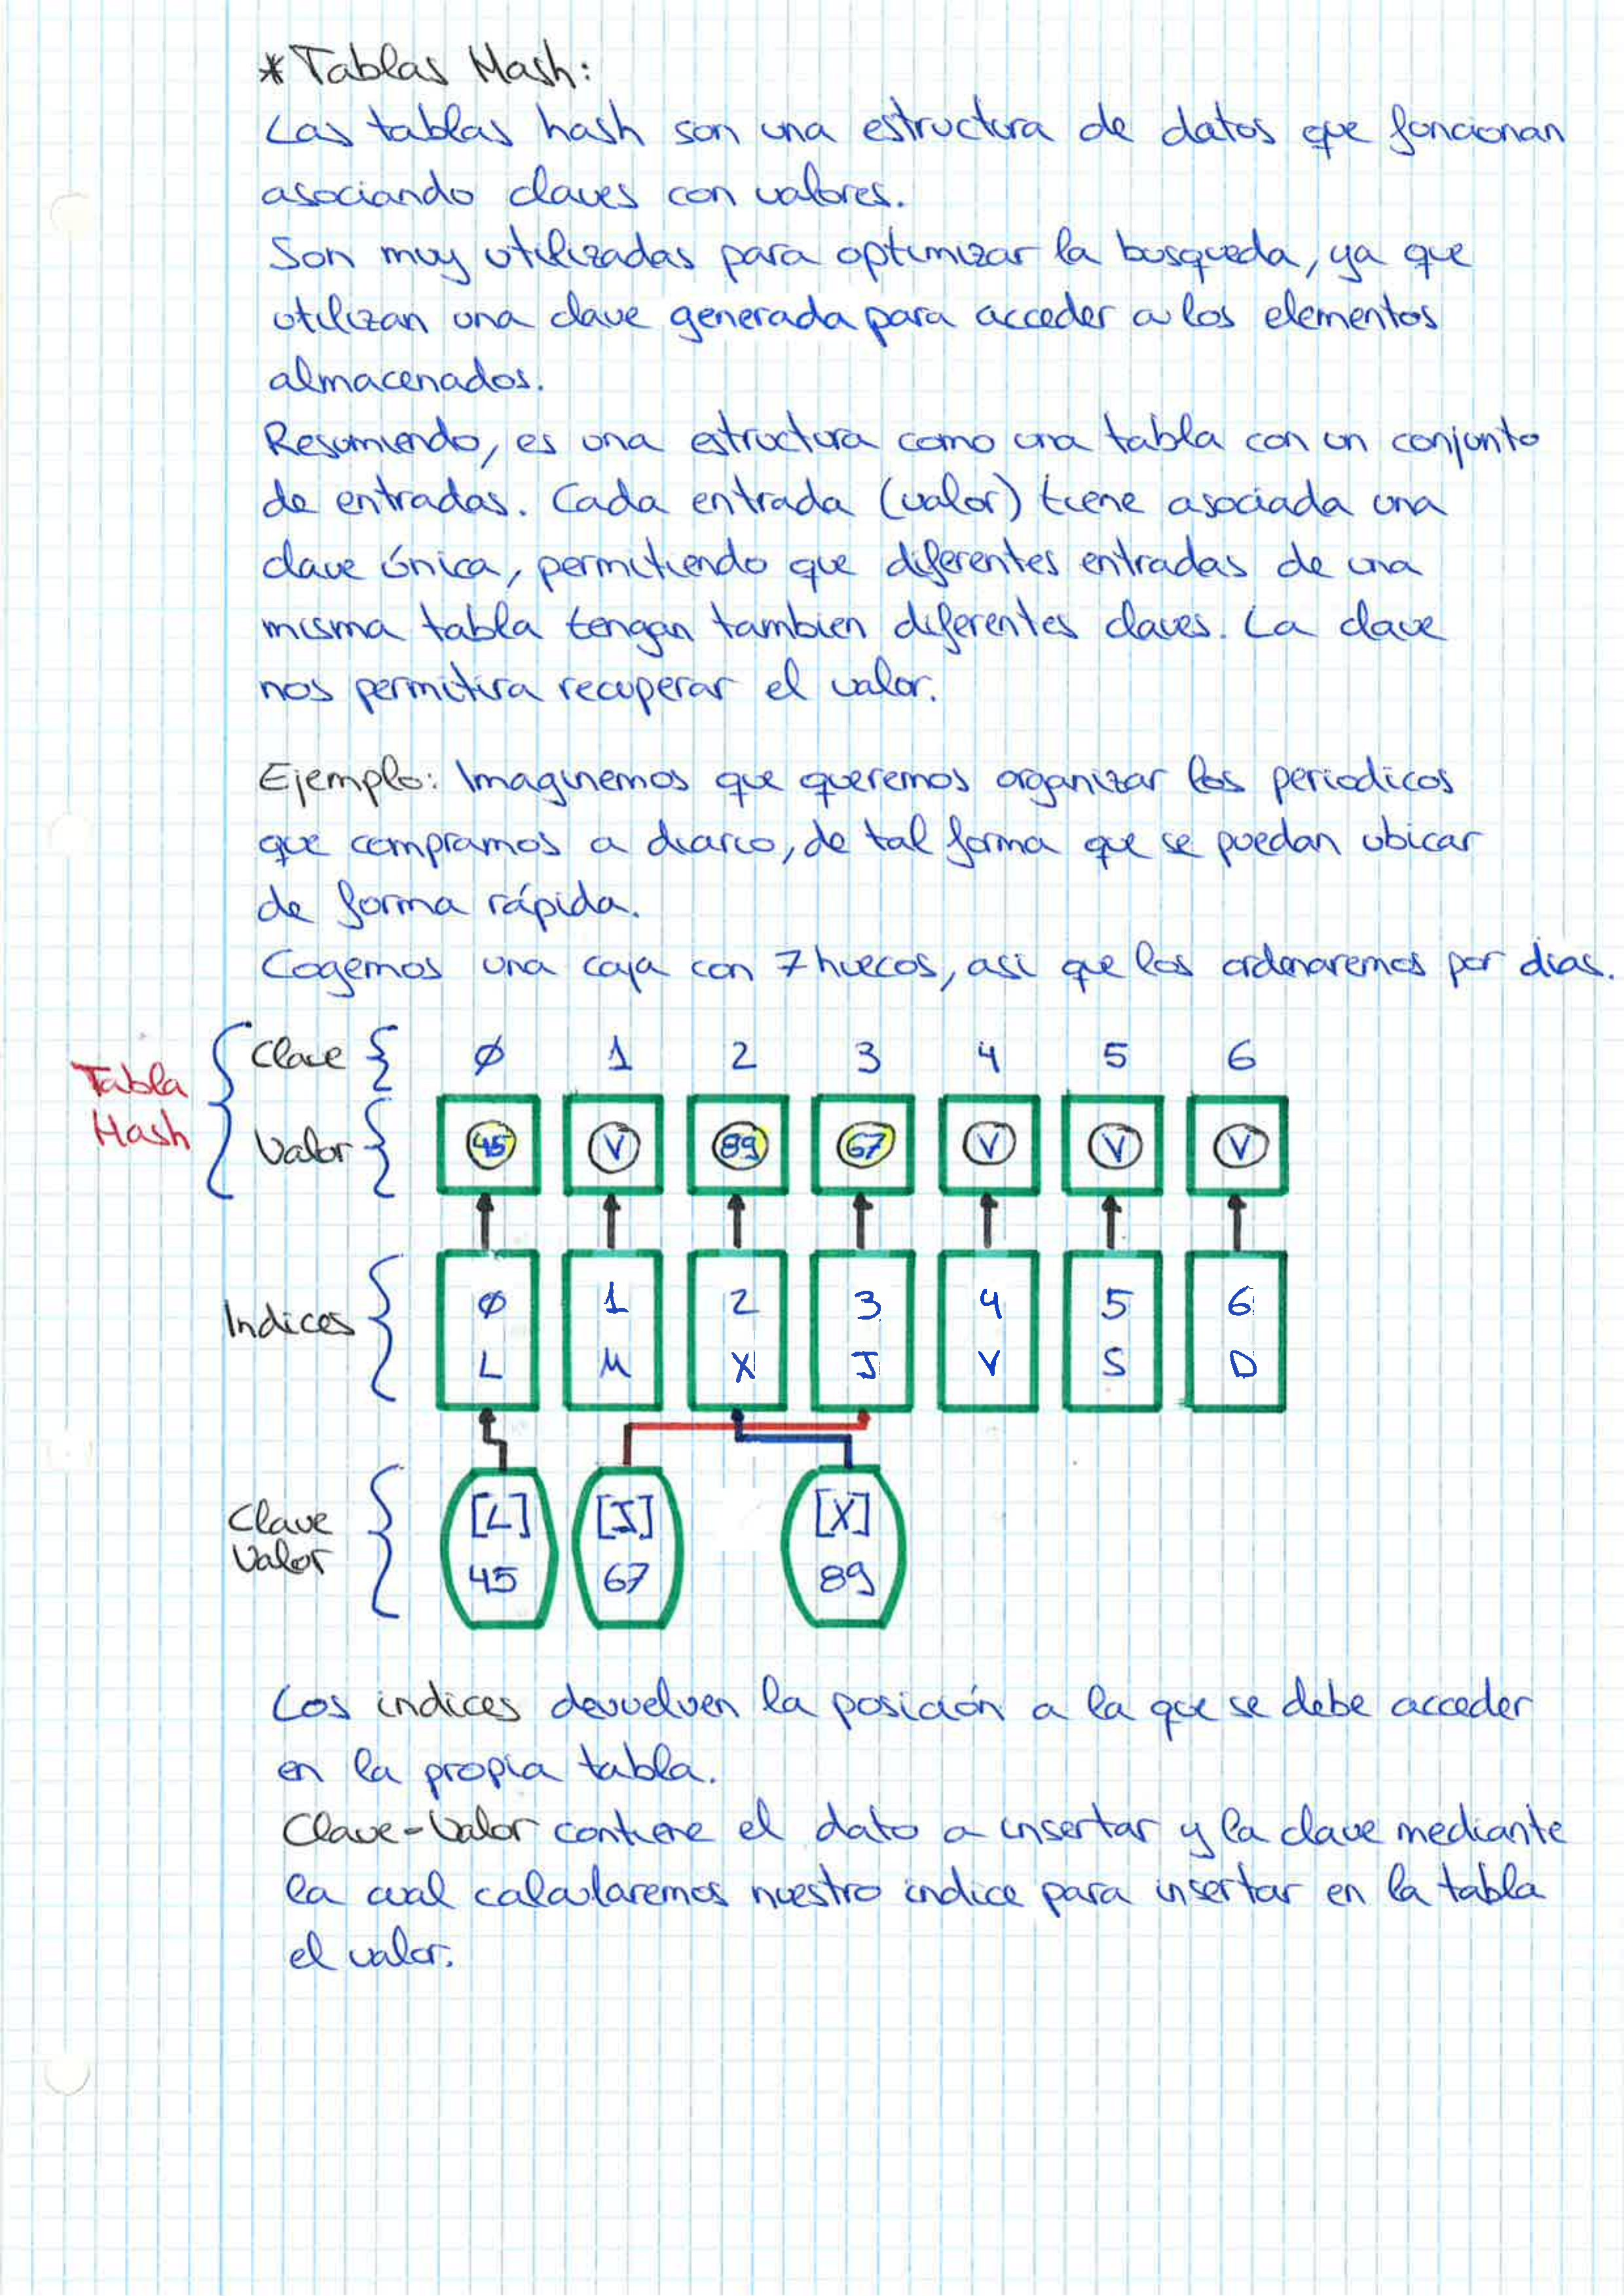 * Tablas Hash:
Las tablas hash son una estructura de datos que funcionan
asociando claves con valores.
Son muy utilizadas para optimizar la busqueda, ya que
utilizan una clave generada para acceder a los elementos
almacenados.
Resumiendo, es una estructura como una tabla con un conjunto
de entradas. Cada entrada (valor) tiene asociada una
clave única, permitiendo que diferentes entradas de una
misma tabla tengan tambien diferentes claves. La clave
nos permitira recuperar el valor.
Ejemplo: Imaginemos que queremos organizar los periodicos
que compramos a diario, de tal forma que se puedan ubicar
de forma rápida.
Cogemos una caja con 7 huecos, asi que los ordenaremos por dias.
Tabla Hash
Clave { Ø 1 2 3 4 5 6
Valor { 45 V 89 67 V V V
Indices { Ø 1 2 3 4 5 6
L M X J V S D
Clave [L] [J] [X]
Valor 45 67 89
Los indices devuelven la posición a la que se debe acceder
en la propia tabla.
Clave-Valor contiene el dato a insertar y la clave mediante
la cual calcularemos nuestro indice para insertar en la tabla
el valor.